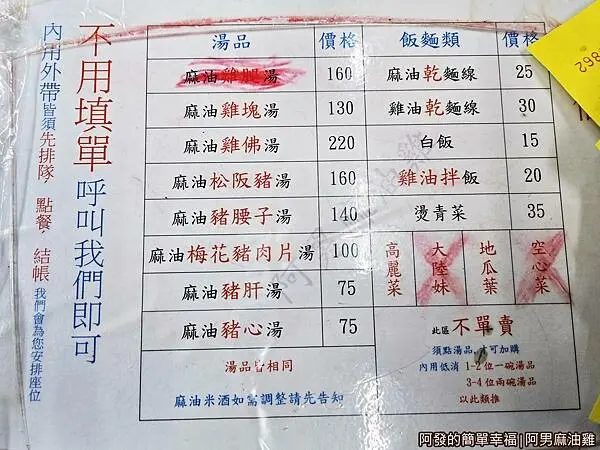 不用填單 呼叫我們即可
內用外帶皆須先排隊, 點餐, 結帳 我們會為您安排座位
湯品 價格 飯麵類 價格
麻油雞腿湯 160 麻油乾麵線 25
麻油雞塊湯 130 雞油乾麵線 30
麻油雞佛湯 220 白飯 15
麻油松阪豬湯 160 雞油拌飯 20
麻油豬腰子湯 140 燙青菜 35
麻油梅花豬肉片湯 100 高麗菜 大陸妹 地瓜葉 空心菜
麻油豬肝湯 75
麻油豬心湯 75
湯品皆相同
麻油米酒如需調整請先告知
此區不單賣
須點湯品,才可加購
內用低消 1-2 位一碗湯品
3-4 位兩碗湯品
以此類推
862
阿發的簡單幸福|阿男麻油雞